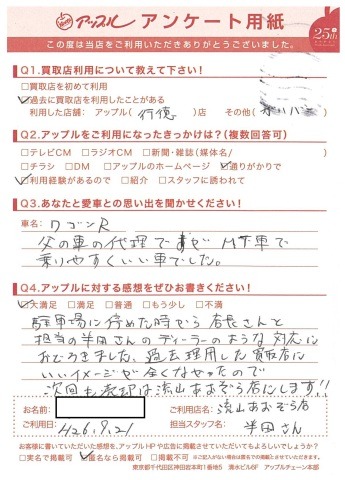 アップル アンケート用紙
25th
この度は当店をご利用いただきありがとうございました。
Q1.買取店利用について教えて下さい!
□買取店を初めて利用
□過去に買取店を利用したことがある
利用した店舗:アップル( 行徳 )店 その他(
Q2.アップルをご利用になったきっかけは?(複数回答可)
□テレビCM □ラジオCM □新聞・雑誌(媒体名/ )
□チラシ □DM □アップルのホームページ □通りがかりで
□利用経験があるので □紹介 □スタッフに誘われて
Q3.あなたと愛車との思い出を聞かせください!
車名:ワゴンR
父の車の代理で MT車で
乗りやすくいい車でした。
Q4.アップルに対する感想をぜひお書きください!
□大満足 □満足 □普通 □もう少し □不満
駐車場に停めた時から店長さんと
担当の半田さんのディーラーのような対応に
おどろきました、過去理用した買取店に
いいイメージが全くなかったので
次回も売却は流山おおぞら店にします!!
お名前:
ご利用店名:流山おおぞら店
ご利用日:H26.9.21
担当スタッフ名:半田さん
お客様に書いていただいた感想を、アップルHPや広告に掲載させていただいてもよろしいでしょうか?
□実名で掲載可 □匿名なら掲載可 □掲載不可 ※ご記入がない場合は匿名での掲載とさせていただきます。
東京都千代田区神田岩本町1番地5 清水ビル6F アップルチェーン本部